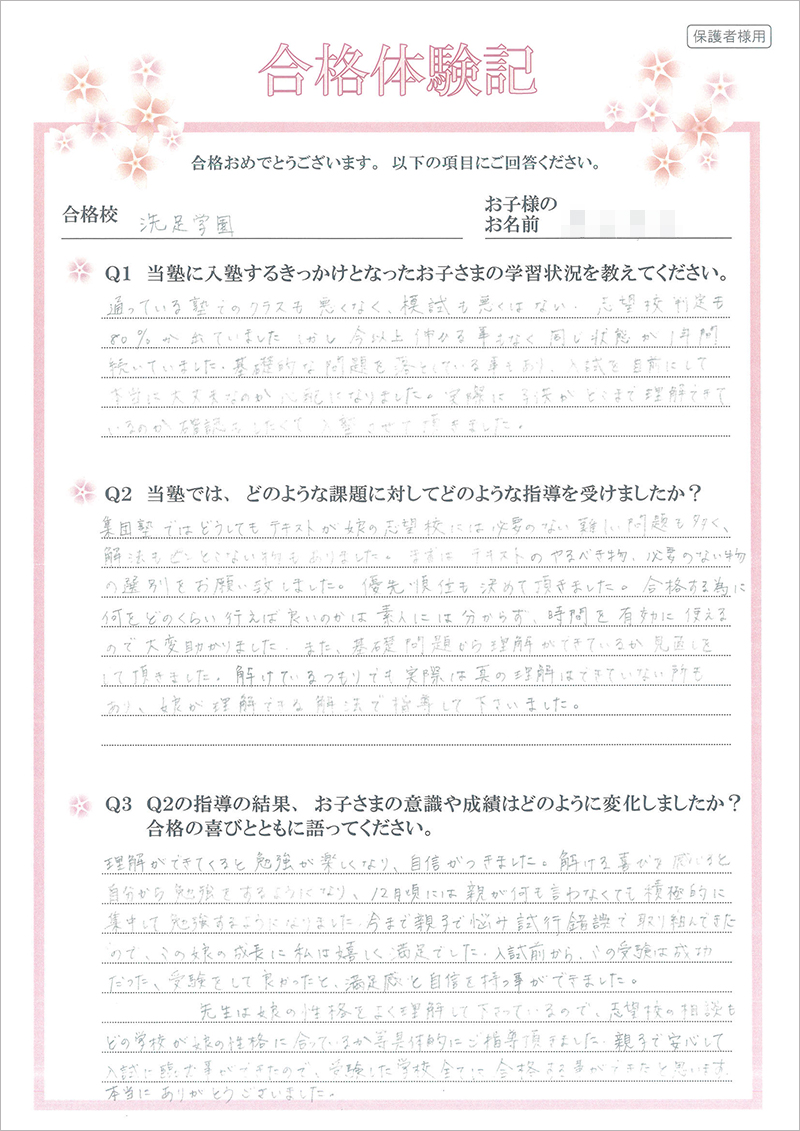 保護者様用
合格体験記
合格おめでとうございます。以下の項目にご回答ください。
合格校 洗足学園
お子様の
お名前
Q1 当塾に入塾するきっかけとなったお子さまの学習状況を教えてください。
通っている塾でのクラスも悪くなく、模試も悪くはない。志望校判定も
80%が出ていました。しかし今以上伸びる事もなく同じ状態が1年間
続いていました。基礎的な問題を落としている事もあり、入試を目前にして
本当に大丈夫なのか心配になりました。実際に子供がどこまで理解できて
いるのか確認をしたくて入塾させて頂きました。
Q2 当塾では、どのような課題に対してどのような指導を受けましたか?
集団塾ではどうしてもテキストが娘の志望校には必要のない難しい問題も多く、
解法もピンとこない物もありました。まずはテキストのやるべき物、必要のない物
の選別をお願い致しました。優先順位も決めて頂きました。合格する為に
何をどのくらい行えば良いのかは素人には分からず、時間を有効に使える
ので大変助かりました。また、基礎問題から理解ができているか見直しを
して頂きました。解けているつもりでも実際は真の理解はできていない所も
あり、娘が理解できる解法で指導して下さいました。
Q3 Q2の指導の結果、お子さまの意識や成績はどのように変化しましたか?
合格の喜びとともに語ってください。
理解ができてくると勉強が楽しくなり、自信がつきました。解ける喜びを感じると
自分から勉強をするようになり、12月頃には親が何も言わなくても積極的に
集中して勉強するようになりました。今まで親子で悩み試行錯誤で取り組んできた
ので、この娘の成長に私は嬉しく満足でした。入試前から、この受験は成功
だった、受験をして良かったと、満足感と自信を持つ事ができました。
先生は娘の性格をよく理解して下さっているので、志望校の相談も
どの学校が娘の性格に合っているか等具体的にご指導頂きました。親子で安心して
入試に臨む事ができたので、受験した学校全てに合格する事ができたと思います。
本当にありがとうございました。